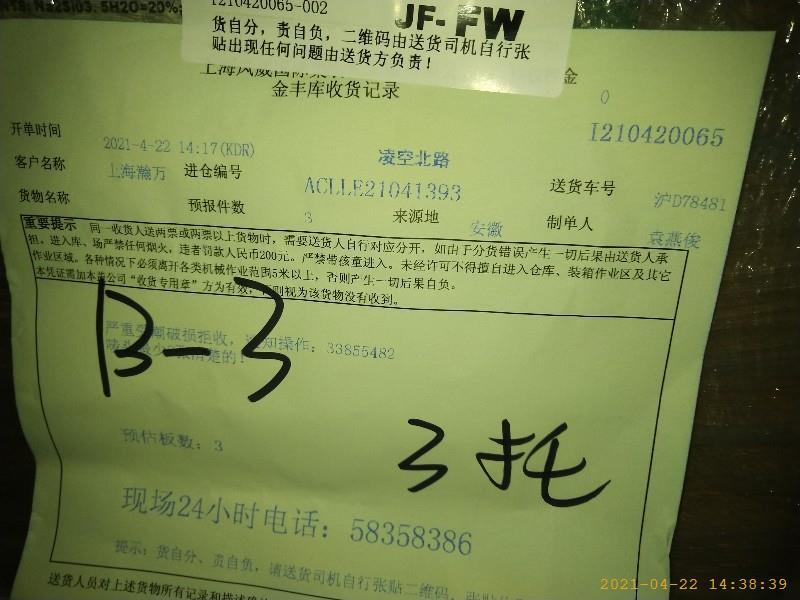 5H2O=20%;
I210420065-002
JF-FW
货自分，责自负，二维码由送货司机自行张
贴出现任何问题由送货方负责！
金丰库收货记录
金
0
I210420065
开单时间
2021-4-22 14:17(KDR)
凌空北路
客户名称
上海瀚万
进仓编号
ACLLE21041393
送货车号
沪D78481
货物名称
预报件数
3
来源地
安徽
制单人
袁燕俊
重要提示 同一收货人送两票或两票以上货物时，需要送货人自行对应分开，如由于分货错误产生一切后果由送货人承
担。进入库、场严禁任何烟火，违者罚款人民币200元。严禁带孩童进入。未经许可不得擅自进入仓库、装箱作业区及其它
作业区域。各种情况下必须离开各类机械作业范围5米以上，否则产生一切后果自负。
本凭证需加本公司“收货专用章”方为有效，否则视为该货物没有收到。
严重 潮破损拒收， 知操作：33855482
清楚的！
B-3
3托
预估板数：3
现场24小时电话：58358386
提示：货自分、责自负，请送货司机自行张贴二维码，张贴
送货人员对上述货物所有记录和描述
2021-04-22 14:38:39